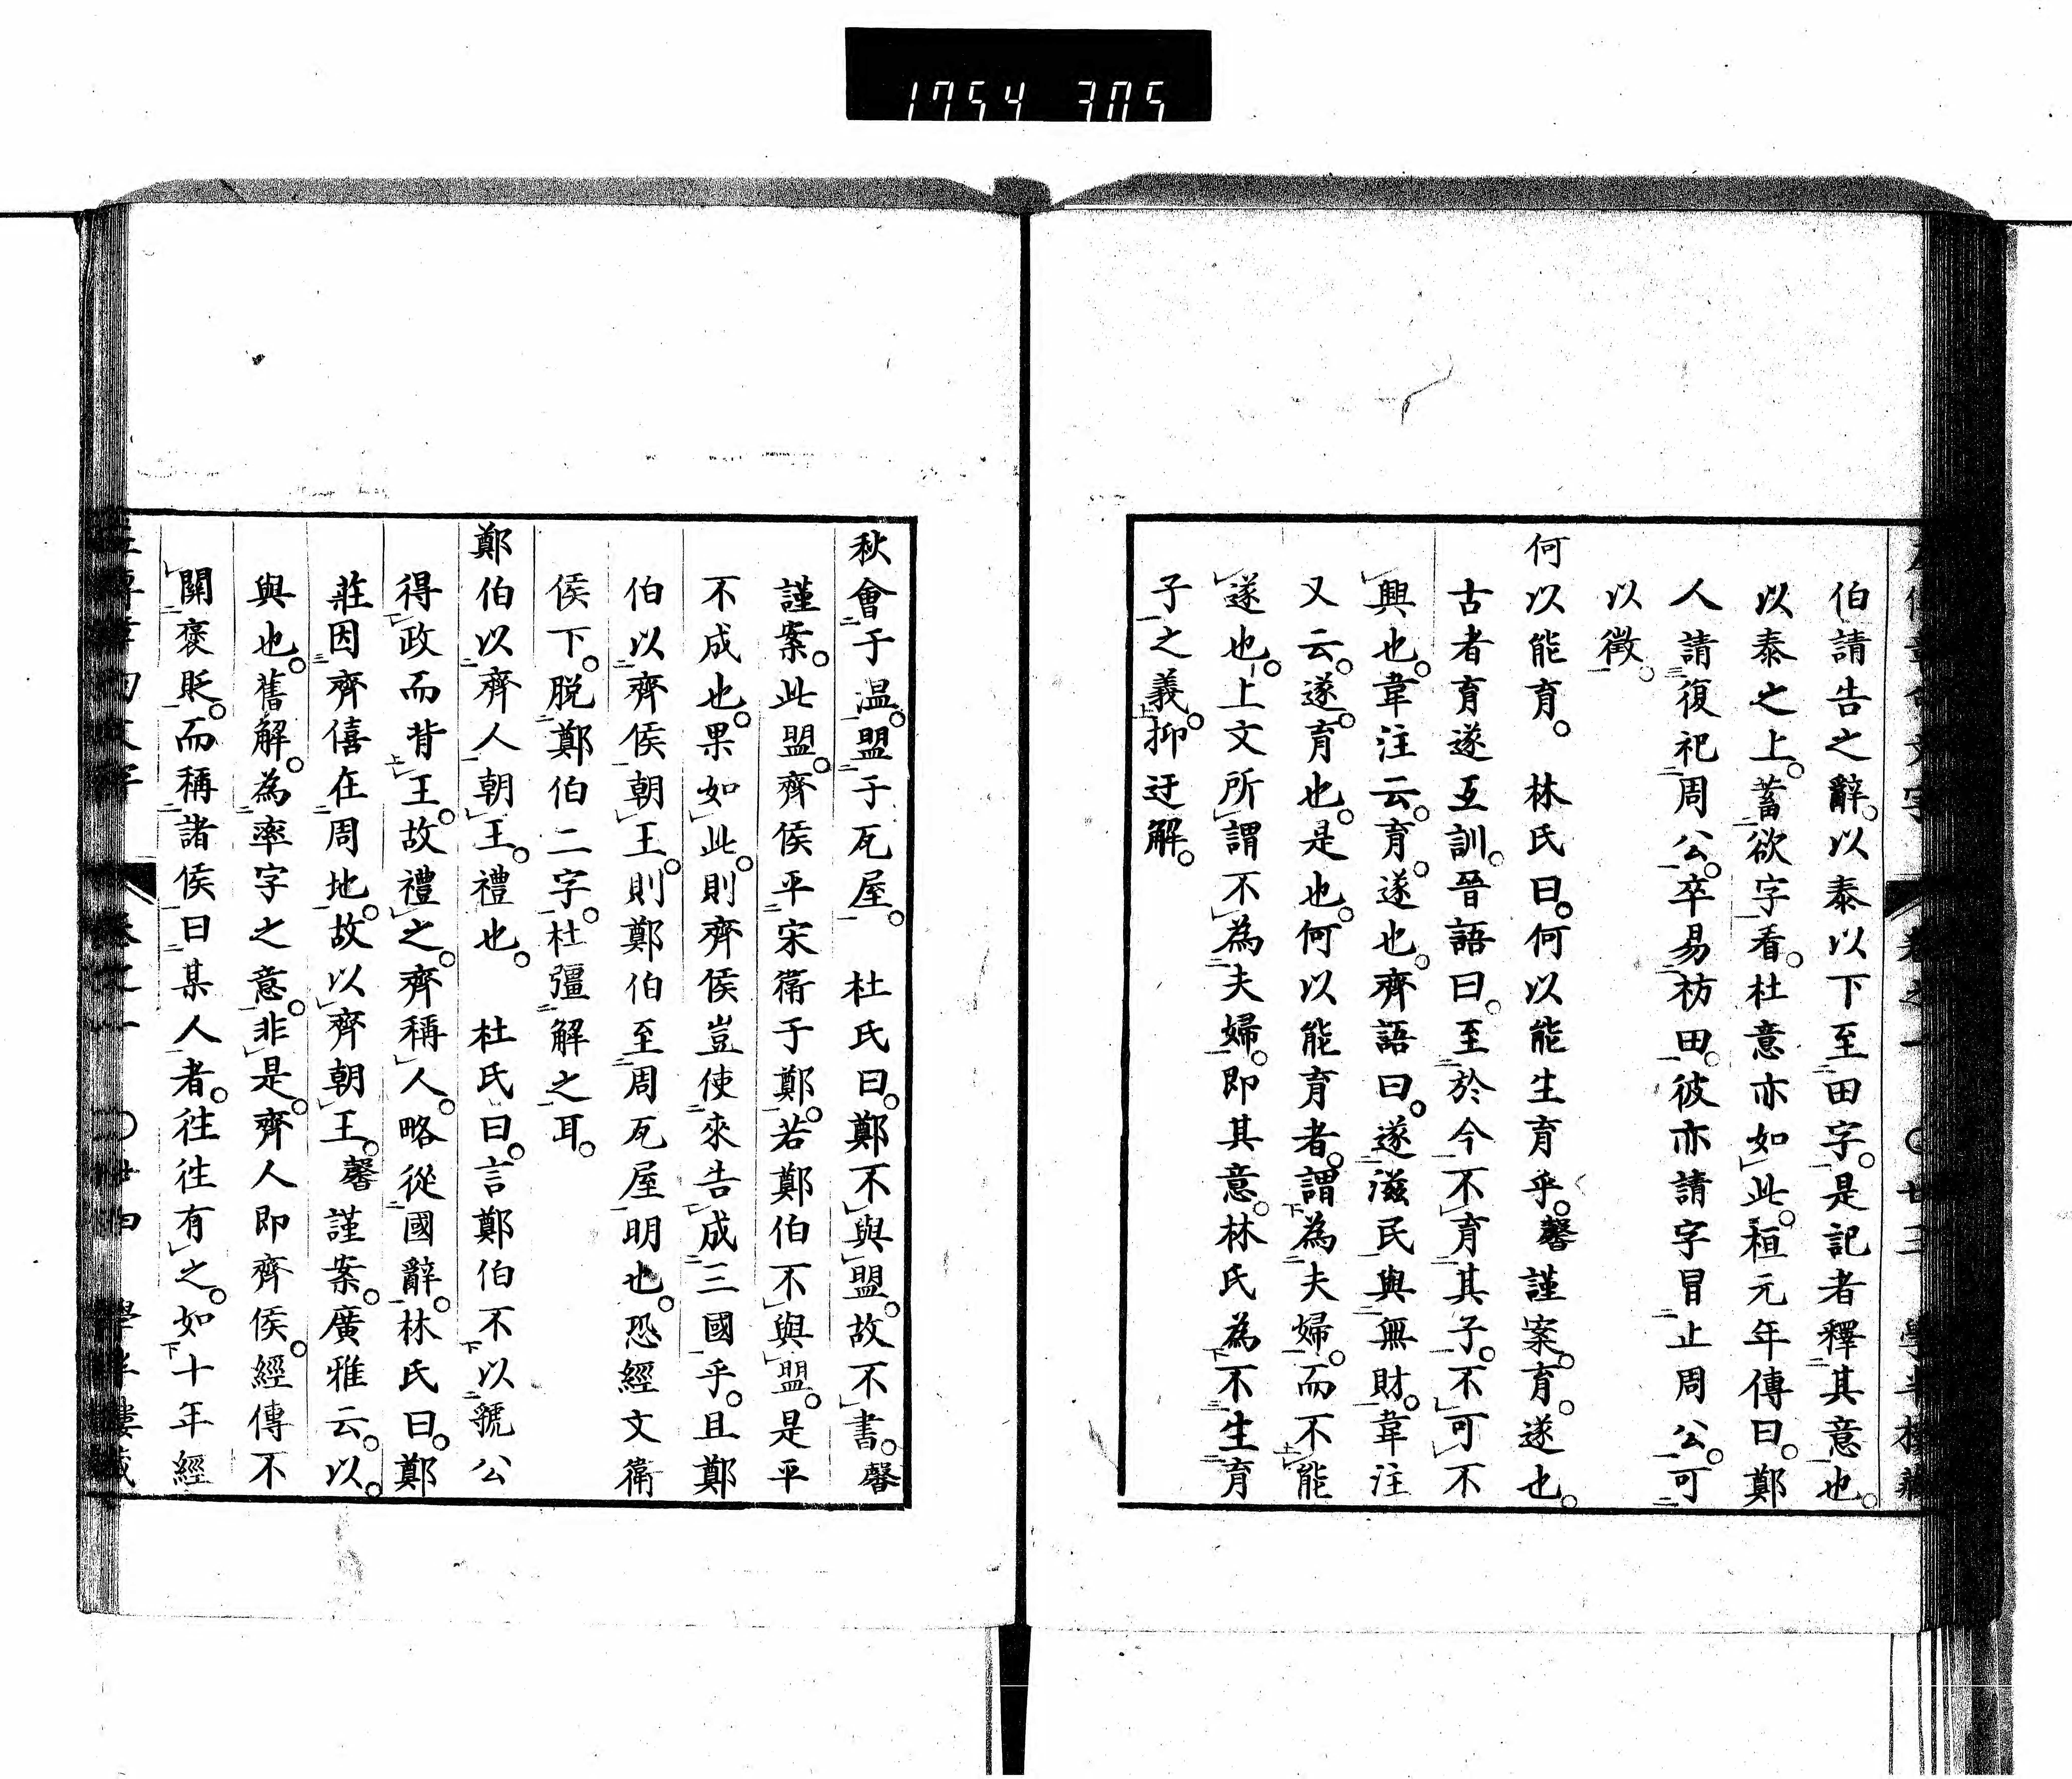 1754 305
伯請告之辭。以泰以下至田字。是記者釋其意也。
以泰之上。蓄欲字看。杜意亦如此。桓元年傳曰。鄭
人請復祀周公。卒易枋田。彼亦請字冒止周公。可
以徵。
何以能育。 林氏曰。何以能生育乎。馨謹案。育。遂也。
古者育遂互訓。晉語曰。至於今不育其子。不可不
興也。韋注云。育。遂也。齊語曰。遂滋民與無財。韋注
又云。遂。育也。是也。何以能育者。謂為夫婦。而不能
遂也。上文所謂不為夫婦。即其意。林氏為不生育
子之義。抑迂解。
秋會于温。盟于瓦屋。 杜氏曰。鄭不與盟。故不書。馨
謹案。此盟。齊侯平宋衛于鄭。若鄭伯不與盟。是平
不成也。果如此。則齊侯豈使來告成三國乎。且鄭
伯以齊侯朝王。則鄭伯至周瓦屋明也。恐經文衛
侯下。脱鄭伯二字。杜彊解之耳。
鄭伯以齊人朝王。禮也。 杜氏曰。言鄭伯不以虢公
得政而背王。故禮之。齊稱人。略從國辭。林氏曰。鄭
莊因齊僖在周地。故以齊朝王。馨謹案。廣雅云。以。
與也。舊解。為率字之意。非是。齊人即齊侯。經傳不
關褒貶。而稱諸侯曰某人者。往往有之。如十年經